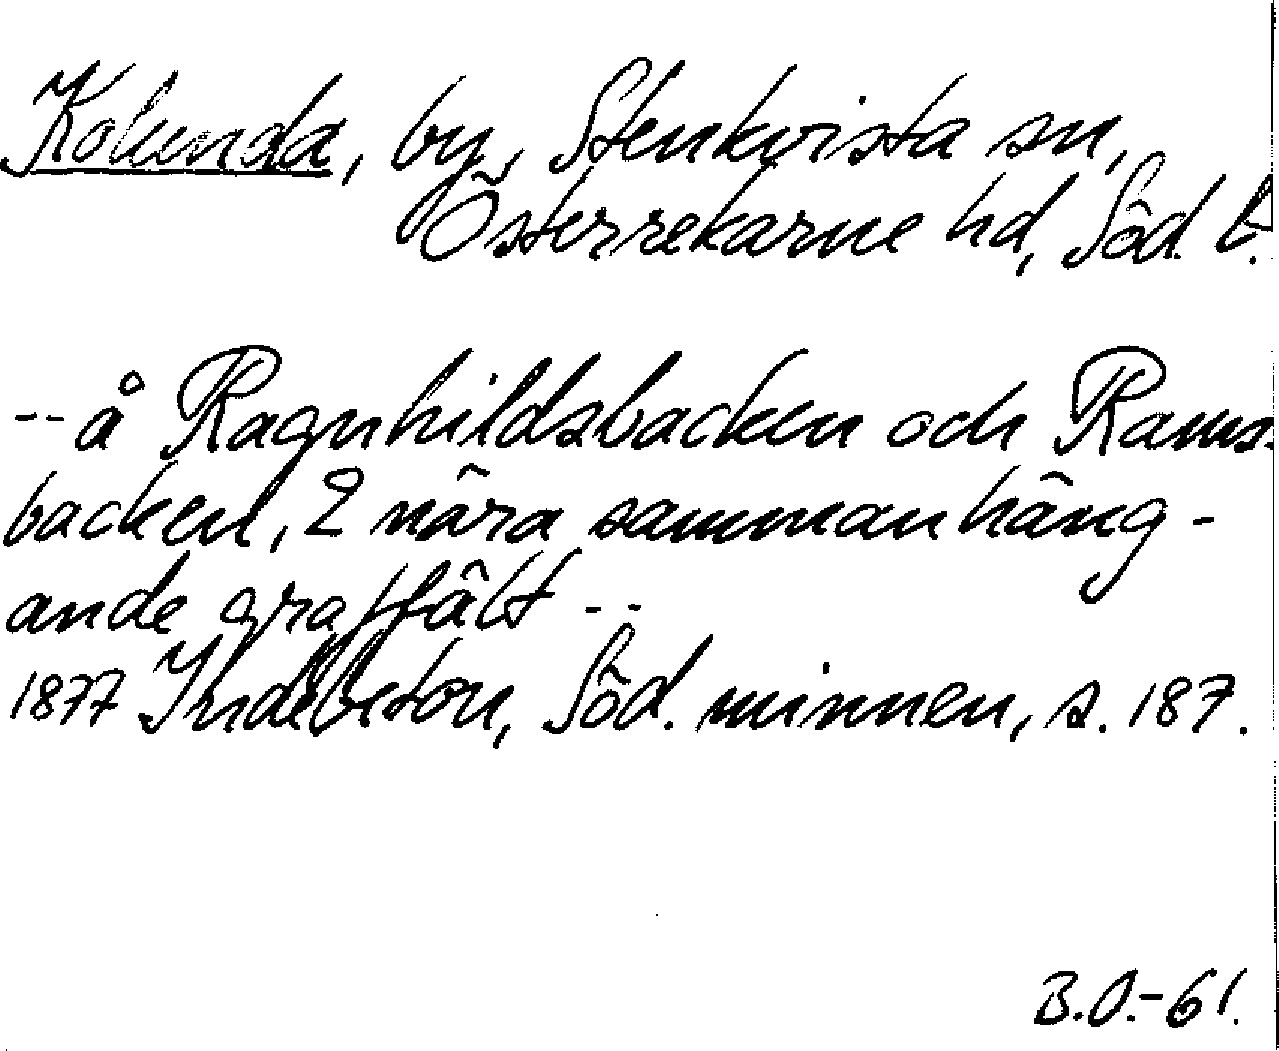 Kolunda, by, Stenkvista sn,
Österrekarne hd, Söd. l.
-- å Ragnhildsbacken och Rams-
backen, 2 nära sammanhäng-
ande graffält --
1877 Indebetou, Söd. minnen, s. 187.
B.O.-61.